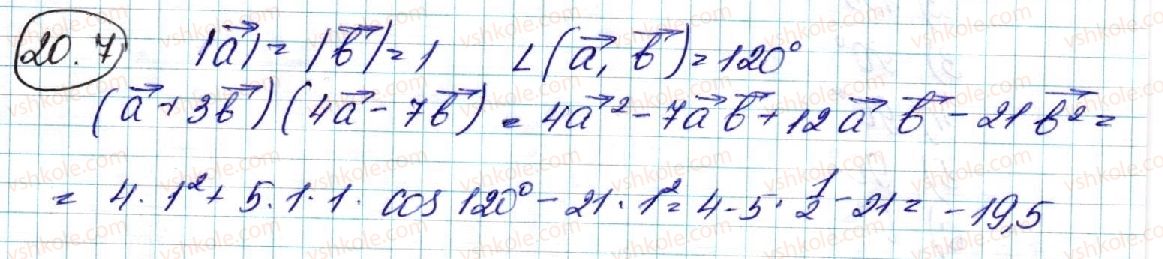 20.7 |a⃗| = |b⃗| = 1 ∠(a⃗, b⃗) = 120°
(a⃗ + 3b⃗)(4a⃗ - 7b⃗) = 4a⃗² - 7a⃗ b⃗ + 12a⃗ b⃗ - 21b⃗² =
= 4·1² + 5·1·1·cos 120° - 21·1² = 4 - 5·1/2 - 21 = -19,5